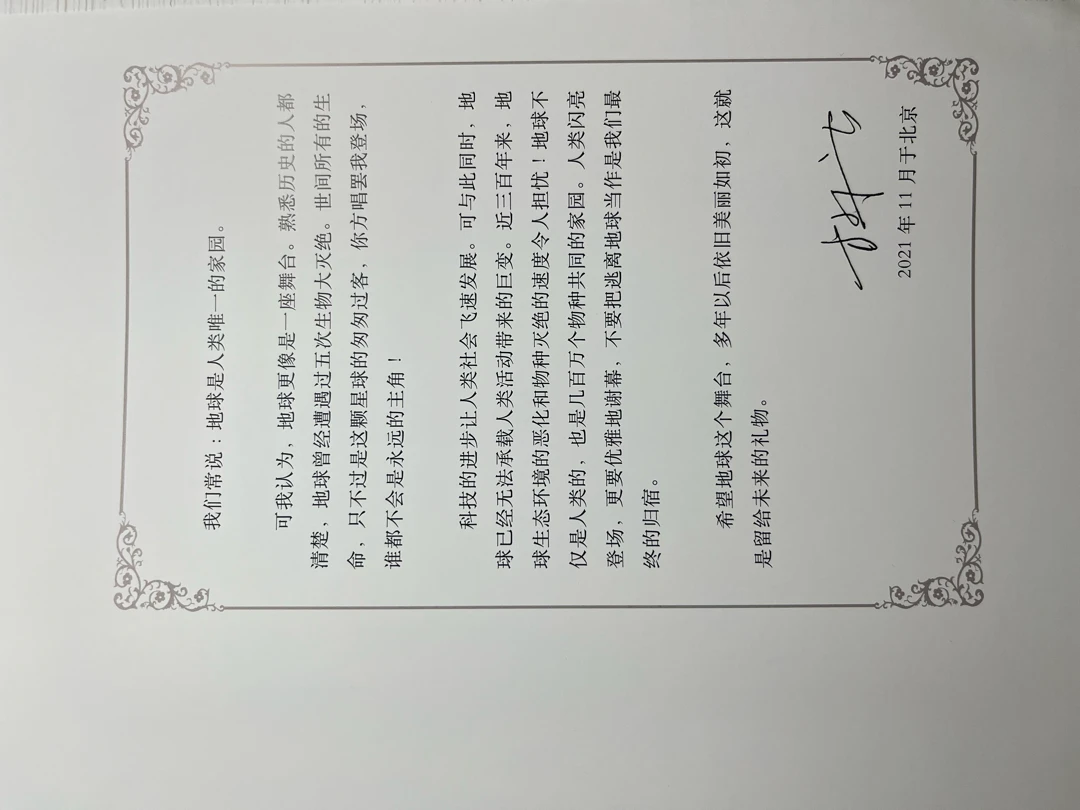 我们常说：地球是人类唯一的家园。
可我认为，地球更像是一座舞台。熟悉历史的人都
清楚，地球曾经遭遇过五次生物大灭绝。世间所有的生
命，只不过是这颗星球的匆匆过客，你方唱罢我登场，
谁都不会是永远的主角！
科技的进步让人类社会飞速发展。可与此同时，地
球已经无法承载人类活动带来的巨变。近三百年来，地
球生态环境的恶化和物种灭绝的速度令人担忧！地球不
仅是人类的，也是几百万个物种共同的家园。人类闪亮
登场，更要优雅地谢幕，不要把逃离地球当作是我们最
终的归宿。
希望地球这个舞台，多年以后依旧美丽如初，这就
是留给未来的礼物。
2021 年 11 月于北京